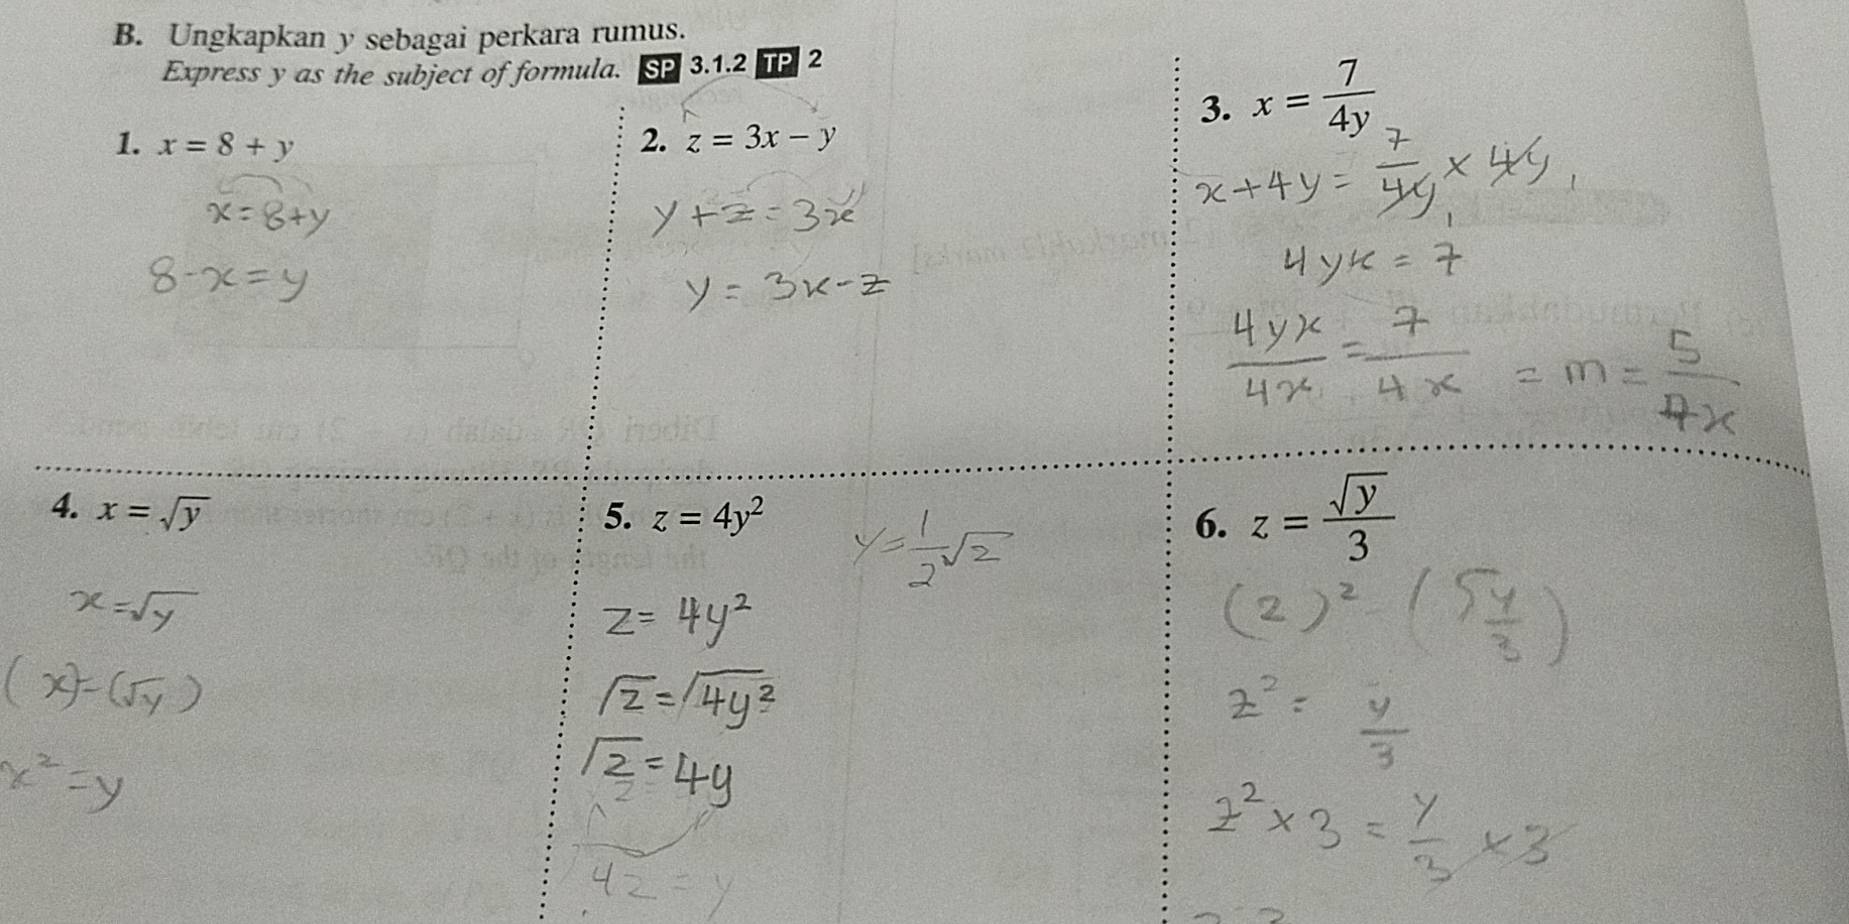 B. Ungkapkan y sebagai perkara rumus.
Express y as the subject of formula. SP 3.1.2 TP 2
1. x = 8 + y
x = 8 + y
8 - x = y
2. z = 3x − y
y + z = 3x
y = 3x - z
3. x = 7/4y
x + 4y = 7/4y × 4y
4yx = 7
4yx/4x = 7/4x = m = 5/4x
4. x = √y
x = √y
(x)² = (√y)
x² = y
5. z = 4y²
y = 1/2 √z
z = 4y²
√z = √4y²
√z = 4y
4z = y
6. z = √y/3
(z)² - (√y/3)
z² = y/3
z² × 3 = y/3 × 3